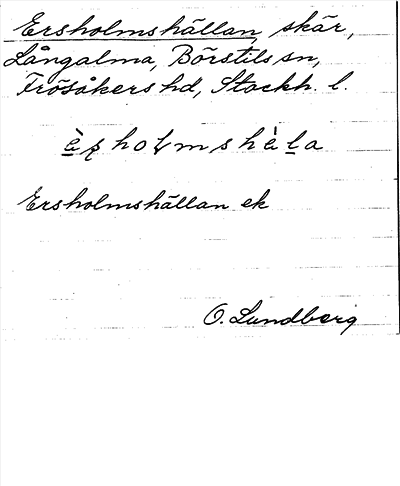 Ersholmshällan, skär,
Långalma, Börstils sn,
Frösåkers hd, Stockh. l.
Ersholmshällan ek
O. Lundberg